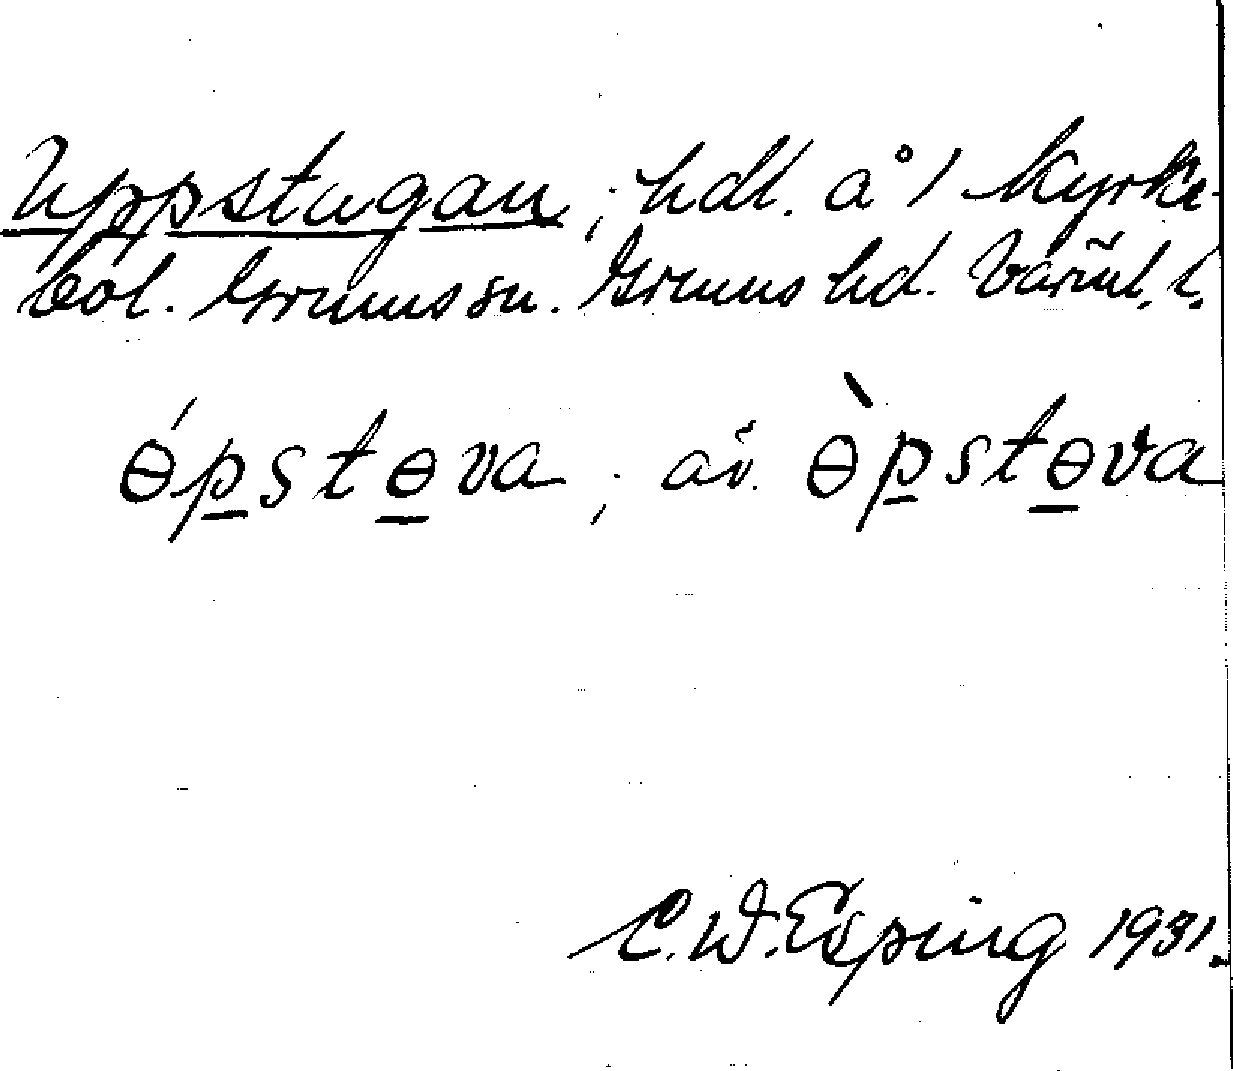 Uppstugan; hdl. å 1 Kyrke-
bol. Grums sn. Grums hd. Värml. l.
ɵ́pstɵva ; äv. ɵ̀pstɵva
C.W. Esping 1931.